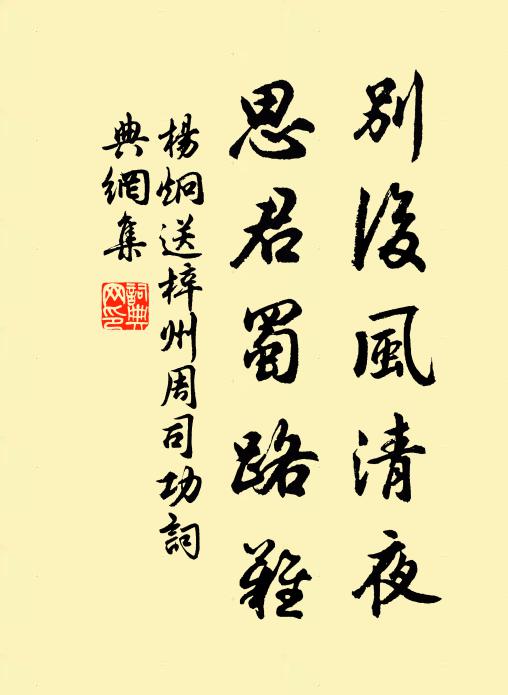 別後風清夜
思君蜀路難
楊炯送梓州周司功詞
典網集
詞典
网印